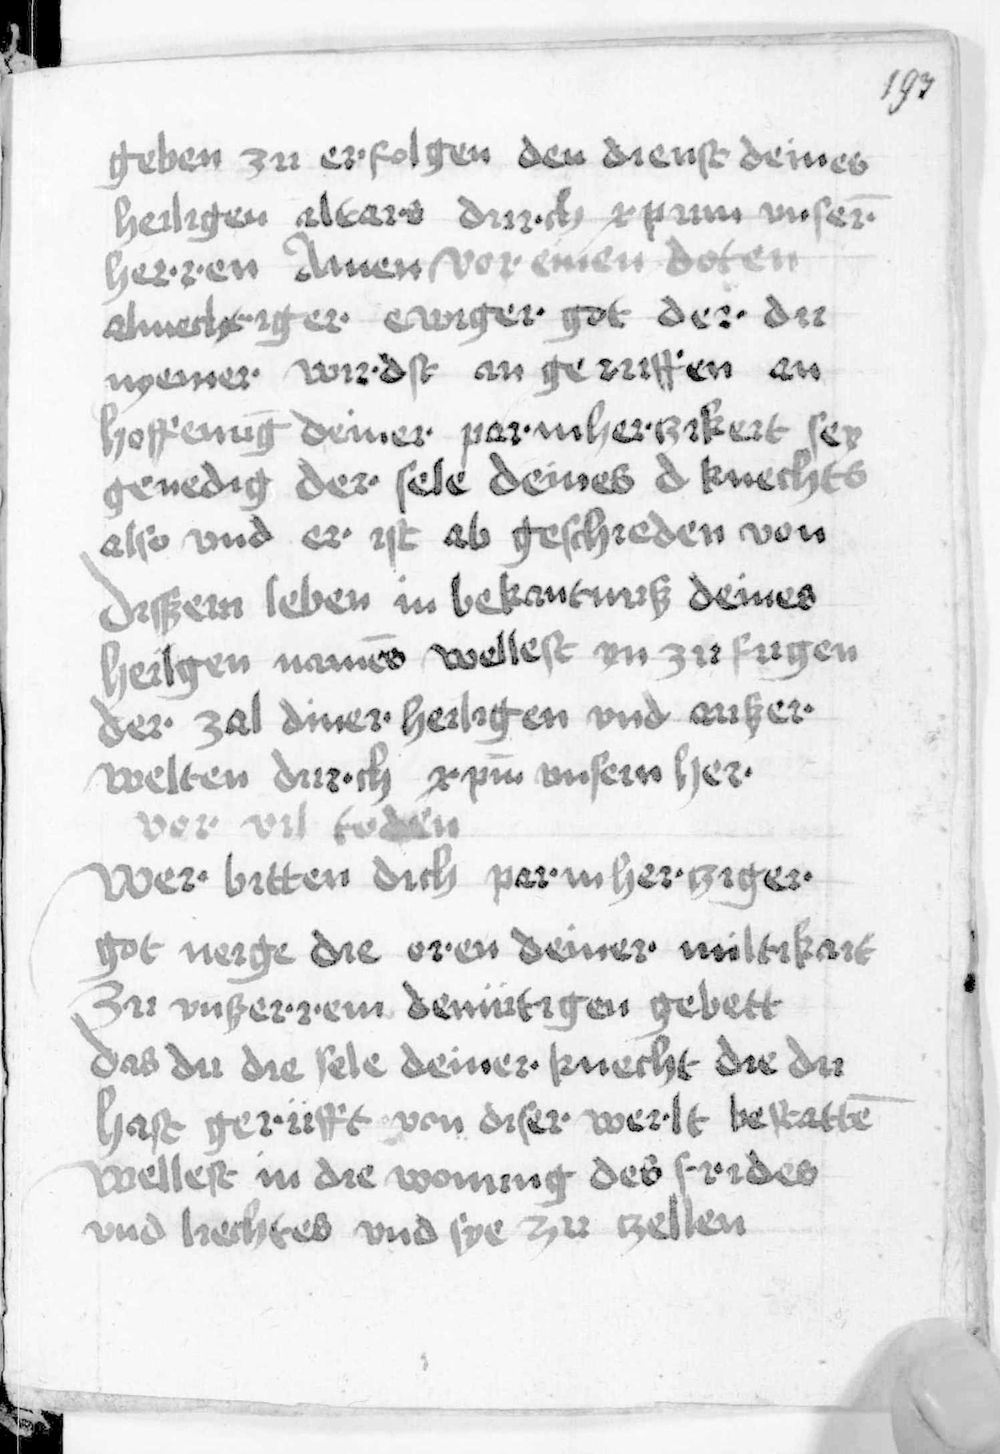 193
geben zu erfolgen den dienst deines
heiligen altars durch xpum vnser̄
herren Amen vor einen doten
almechtiger ewiger got der du
nyemer wurdst an geruffen an
hoffenūg deiner parmherczikeit sey
genedig der sele deines d knechts
also vnd er ist ab geschieden von
disszem leben in bekantnusz deines
heilgen namēs wellest yn zu fugen
der zal diner heiligen vnd auszer
welten durch xpm̄ vnsern her
vor vil toden
Wer bitten dich parmhercziger
got neige die oren deiner miltikait
Zu vnszerrem demütigen gebett
das du die sele deiner knecht die du
hast gerüfft von diser werlt bestattē
wellest in die wonung des frides
vnd liechtes vnd sye zu czellen